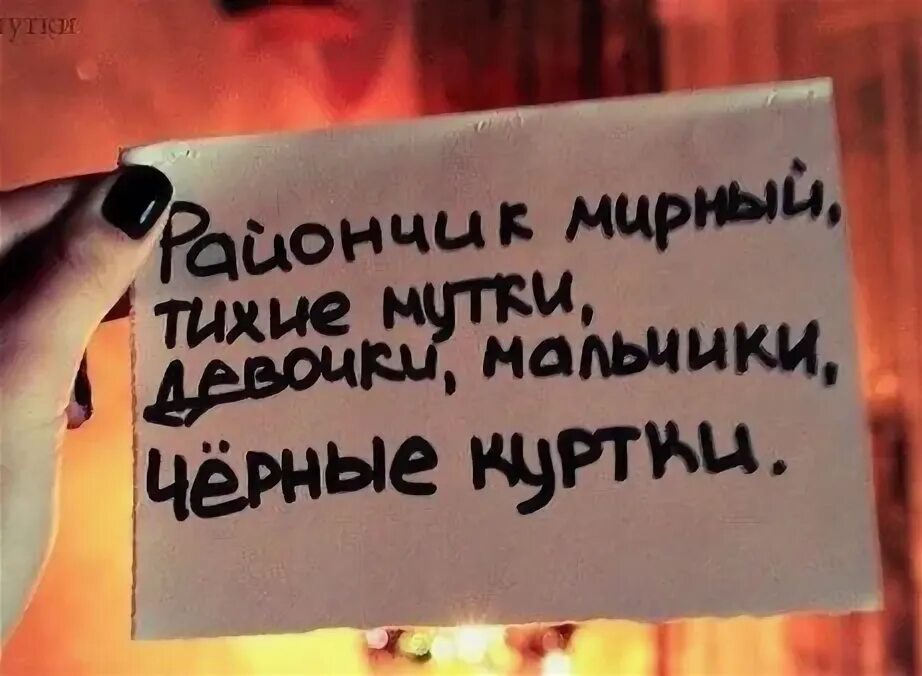 Райончик мирный,
тихие мутки,
девочки, мальчики,
чёрные куртки.